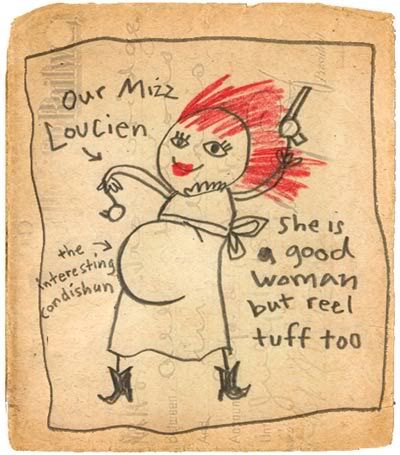 Our Mizz
Loucien
the
interesting
condishun
she is
a good
woman
but reel
tuff too